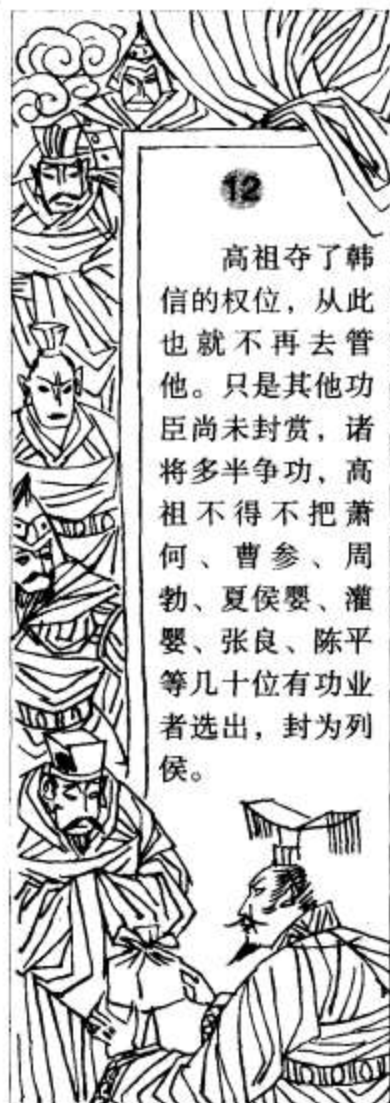 12
高祖夺了韩
信的权位，从此
也就不再去管
他。只是其他功
臣尚未封赏，诸
将多半争功，高
祖不得不把萧
何、曹参、周
勃、夏侯婴、灌
婴、张良、陈平
等几十位有功业
者选出，封为列
侯。